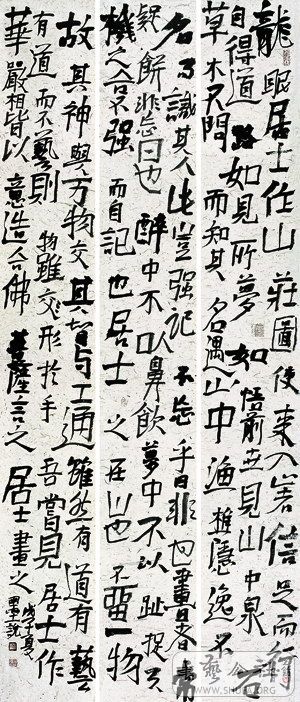 龍眠居士作山莊圖使來入山者信足而行
自得道路如見所夢如悟前世見山中泉石
草木不問而知其名遇山中漁樵隱逸不
名而識其人此豈强記不忘乎曰非也畫日者常
疑餅非忘日也醉中不以鼻飲夢中不以趾捉天
機之合不强而自記也居士之在山也不畱一物
故其神與万物交其智与百工通雖然有道有藝
有道而不藝則物雖交形於手吾嘗見居士作
華嚴相皆以意造合佛菩薩言之居士畫之
戊子夏